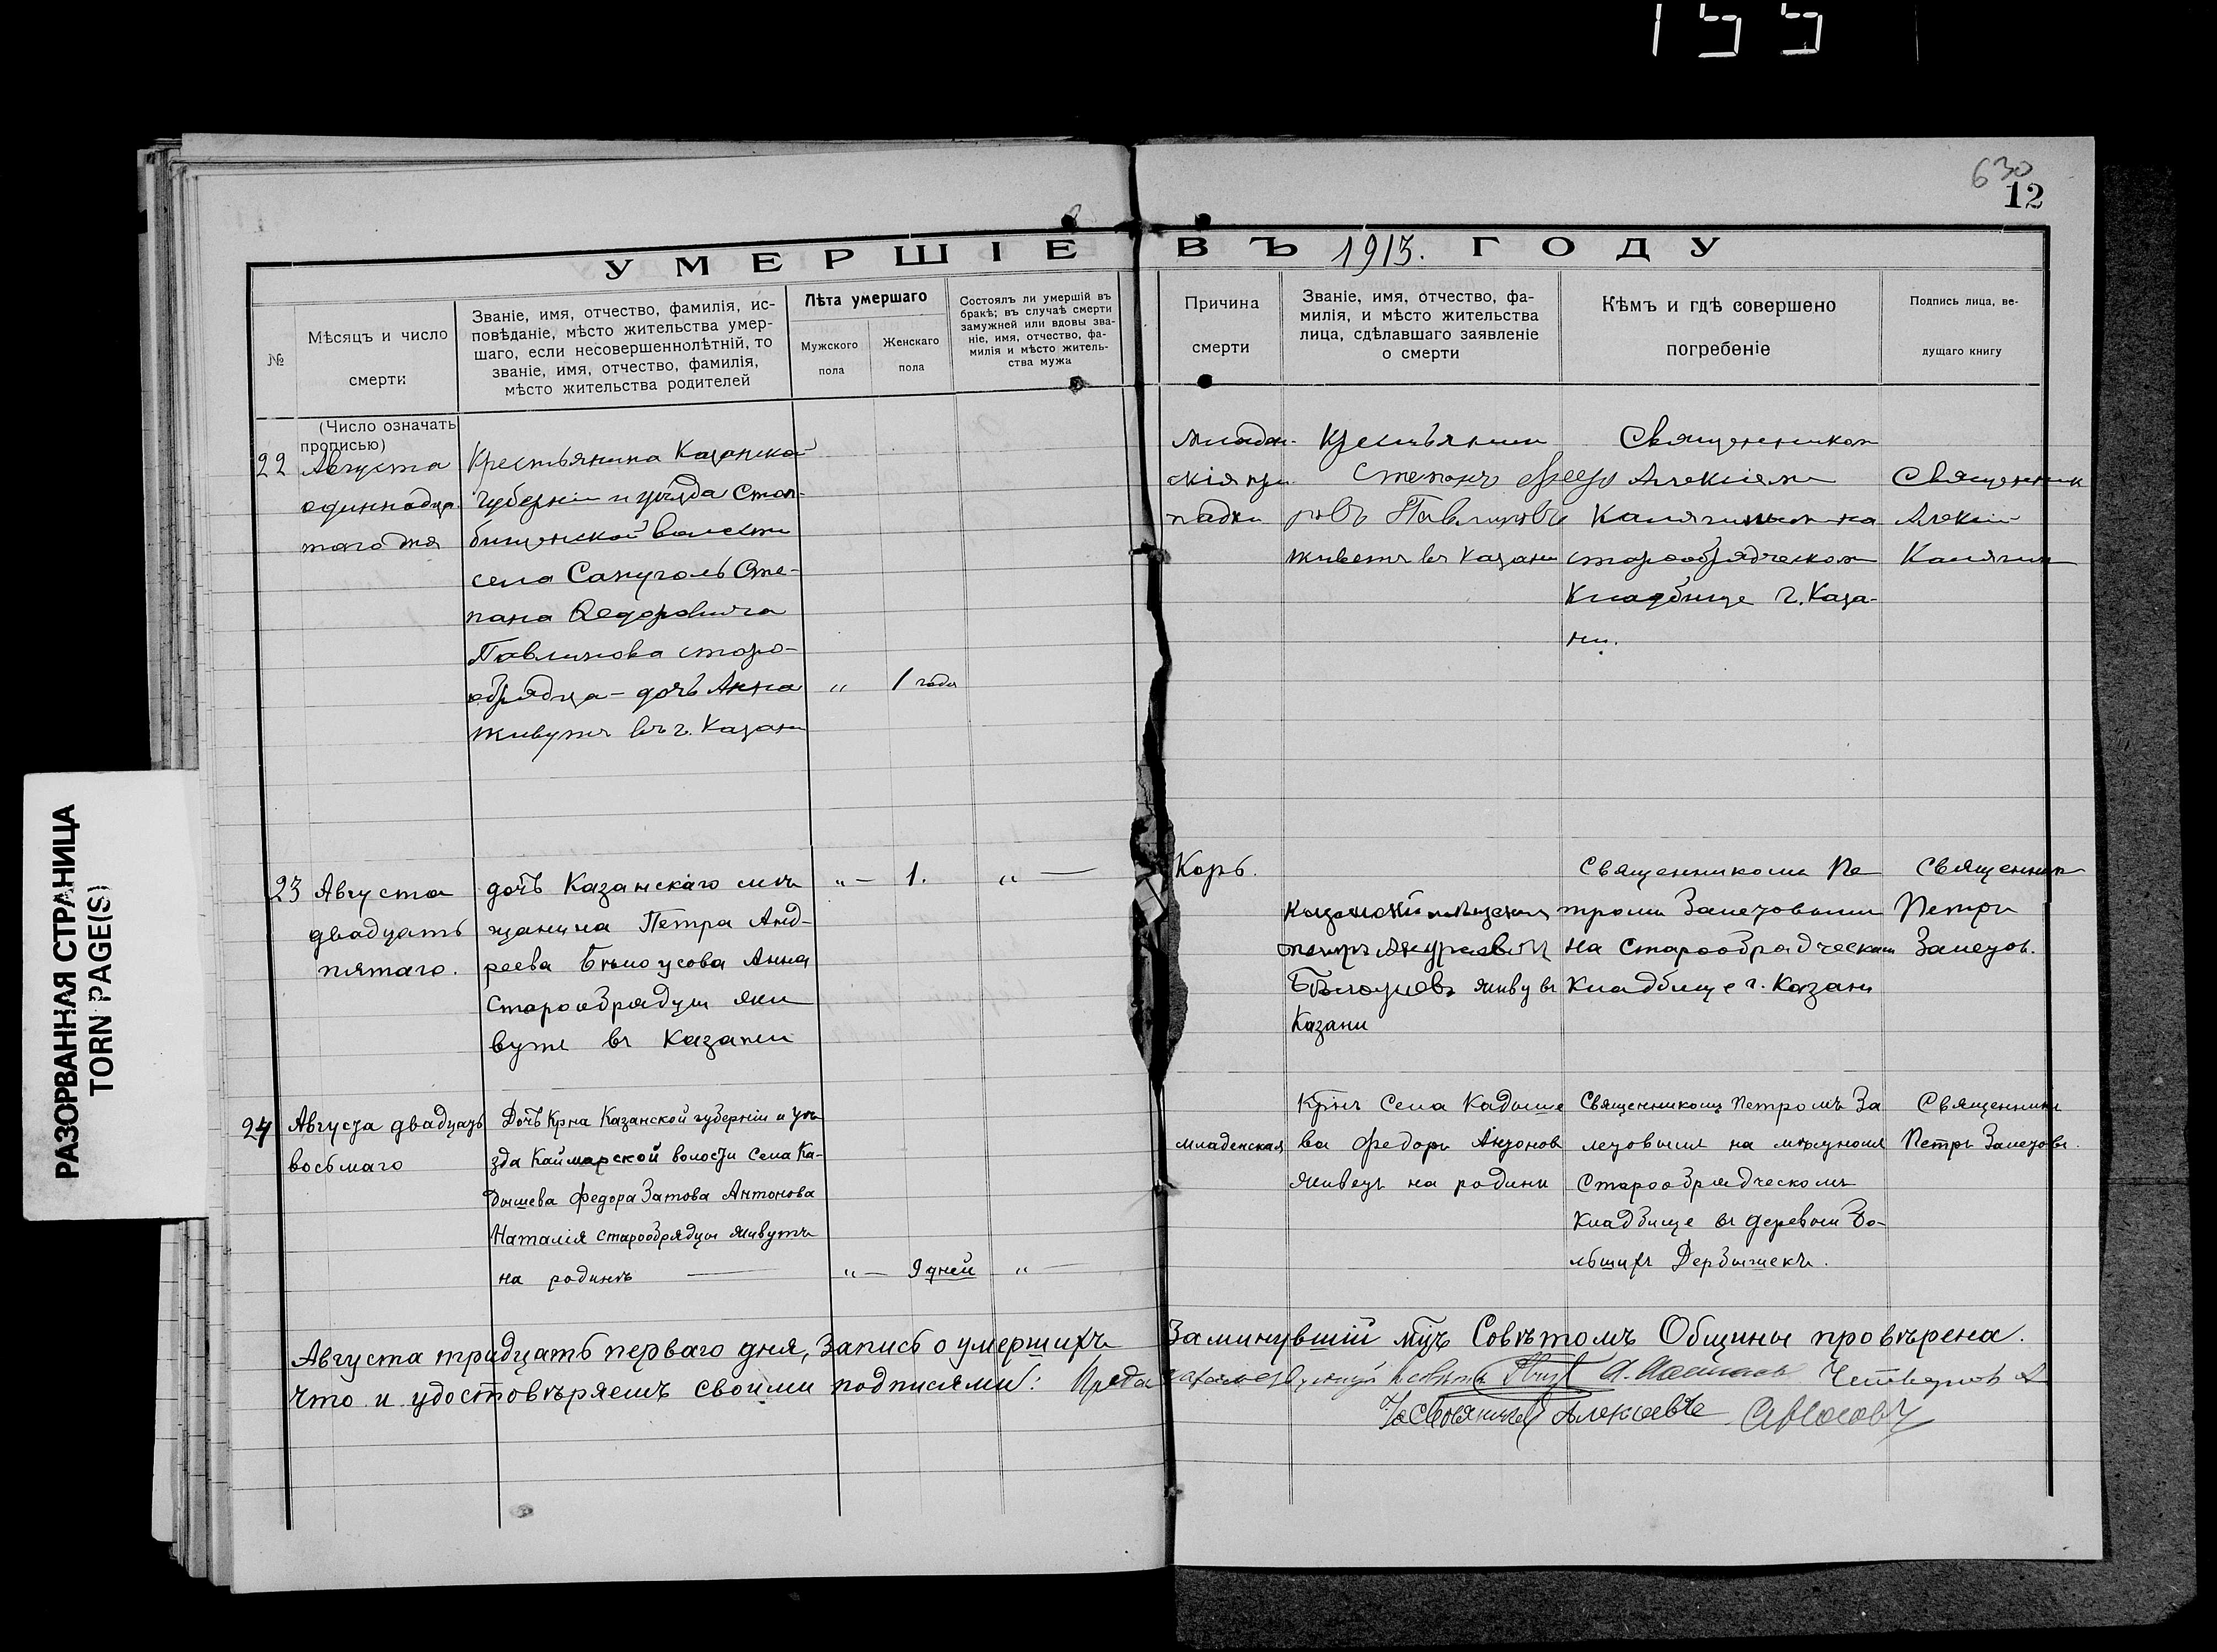 155
630
12
РАЗОРВАННАЯ СТРАНИЦА
TORN PAGE(S)
УМЕРШІЕ ВЪ 1913. ГОДУ
№
Мѣсяцъ и число
смерти
Званіе, имя, отчество, фамилія, ис-
повѣданіе, мѣсто жительства умер-
шаго, если несовершеннолѣтній, то
званіе, имя, отчество, фамилія,
мѣсто жительства родителей
Лѣта умершаго
Мужского
пола
Женскаго
пола
Состоялъ ли умершій въ
бракѣ; въ случаѣ смерти
замужней или вдовы зва-
ніе, имя, отчество, фа-
милія и мѣсто житель-
ства мужа
Причина
смерти
Званіе, имя, отчество, фа-
милія, и мѣсто жительства
лица, сдѣлавшаго заявленіе
о смерти
Кѣмъ и гдѣ совершено
погребеніе
Подпись лица, ве-
дущаго книгу
(Число означать
прописью)
22
Августа
одиннадца-
таго дня
Крестьянина Казанской
губерніи и уѣзда Стол-
бищенской волости
села Сапуголь Сте-
пана Ѳедоровича
Павлинова старо-
обрядца - дочь Анна
живутъ въ г. Казани
" 1 года
младен-
скія при-
падки
Крестьянинъ
Степанъ Ѳедо
ровъ Павлиновъ
живетъ въ Казани
Священникомъ
Алексіемъ
Калягинымъ на
старообрядческомъ
Кладбище г. Каза-
ни.
Священник
Алексій
Калягинъ
23
Августа
двадцать
пятаго.
дочь Казанскаго мѣ
щанина Петра Анд-
реева Бѣлоусова Анна
Старообрядцы жи
вутъ въ Казани
" — 1. " —
Корь.
Казанский мещенин
петръ Андреевич
Бѣлоусовъ живу въ
Казани
Священникомъ Пе
тромъ Залетовымъ
на Старообрядческомъ
Кладбище г. Казани
Священник
Петръ
Залетов.
24
Августа двадцать
восьмаго
Дочь Крна Казанской губерніи и уѣ
зда Каймарской волости Села Ка-
дышева Федора Затова Антонова
Наталія старообрядцы живутъ
на родинѣ —
" — 9 дней " —
младенская
Крінъ Села Кадыше
ва Федоръ Антонов
живетъ на родини
Священникомъ Петромъ За
летовымъ на мѣстномъ
Старообрядческомъ
Кладбище въ деревни Бо-
льшихъ Дербышекъ.
Священникъ
Петръ Залетовъ.
Августа тридцать перваго дня, Запись о умершихъ За минувшій мцъ Совѣтомъ Общины провѣрена.
Что и удостовѣряемъ своими подписями: Председательствующій Совѣта
Алексѣевъ